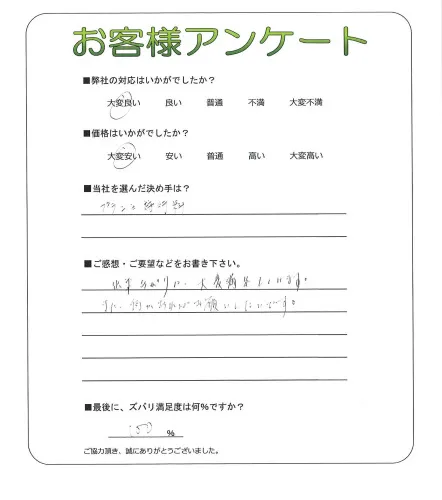 お客様アンケート
■弊社の対応はいかがでしたか?
大変良い 良い 普通 不満 大変不満
■価格はいかがでしたか?
大変安い 安い 普通 高い 大変高い
■当社を選んだ決め手は?
プランと
■ご感想・ご要望などをお書き下さい。
出来上がりに、大変満足しています。
また、何かあればお願いしたいです。
■最後に、ズバリ満足度は何%ですか?
100 %
ご協力頂き、誠にありがとうございました。